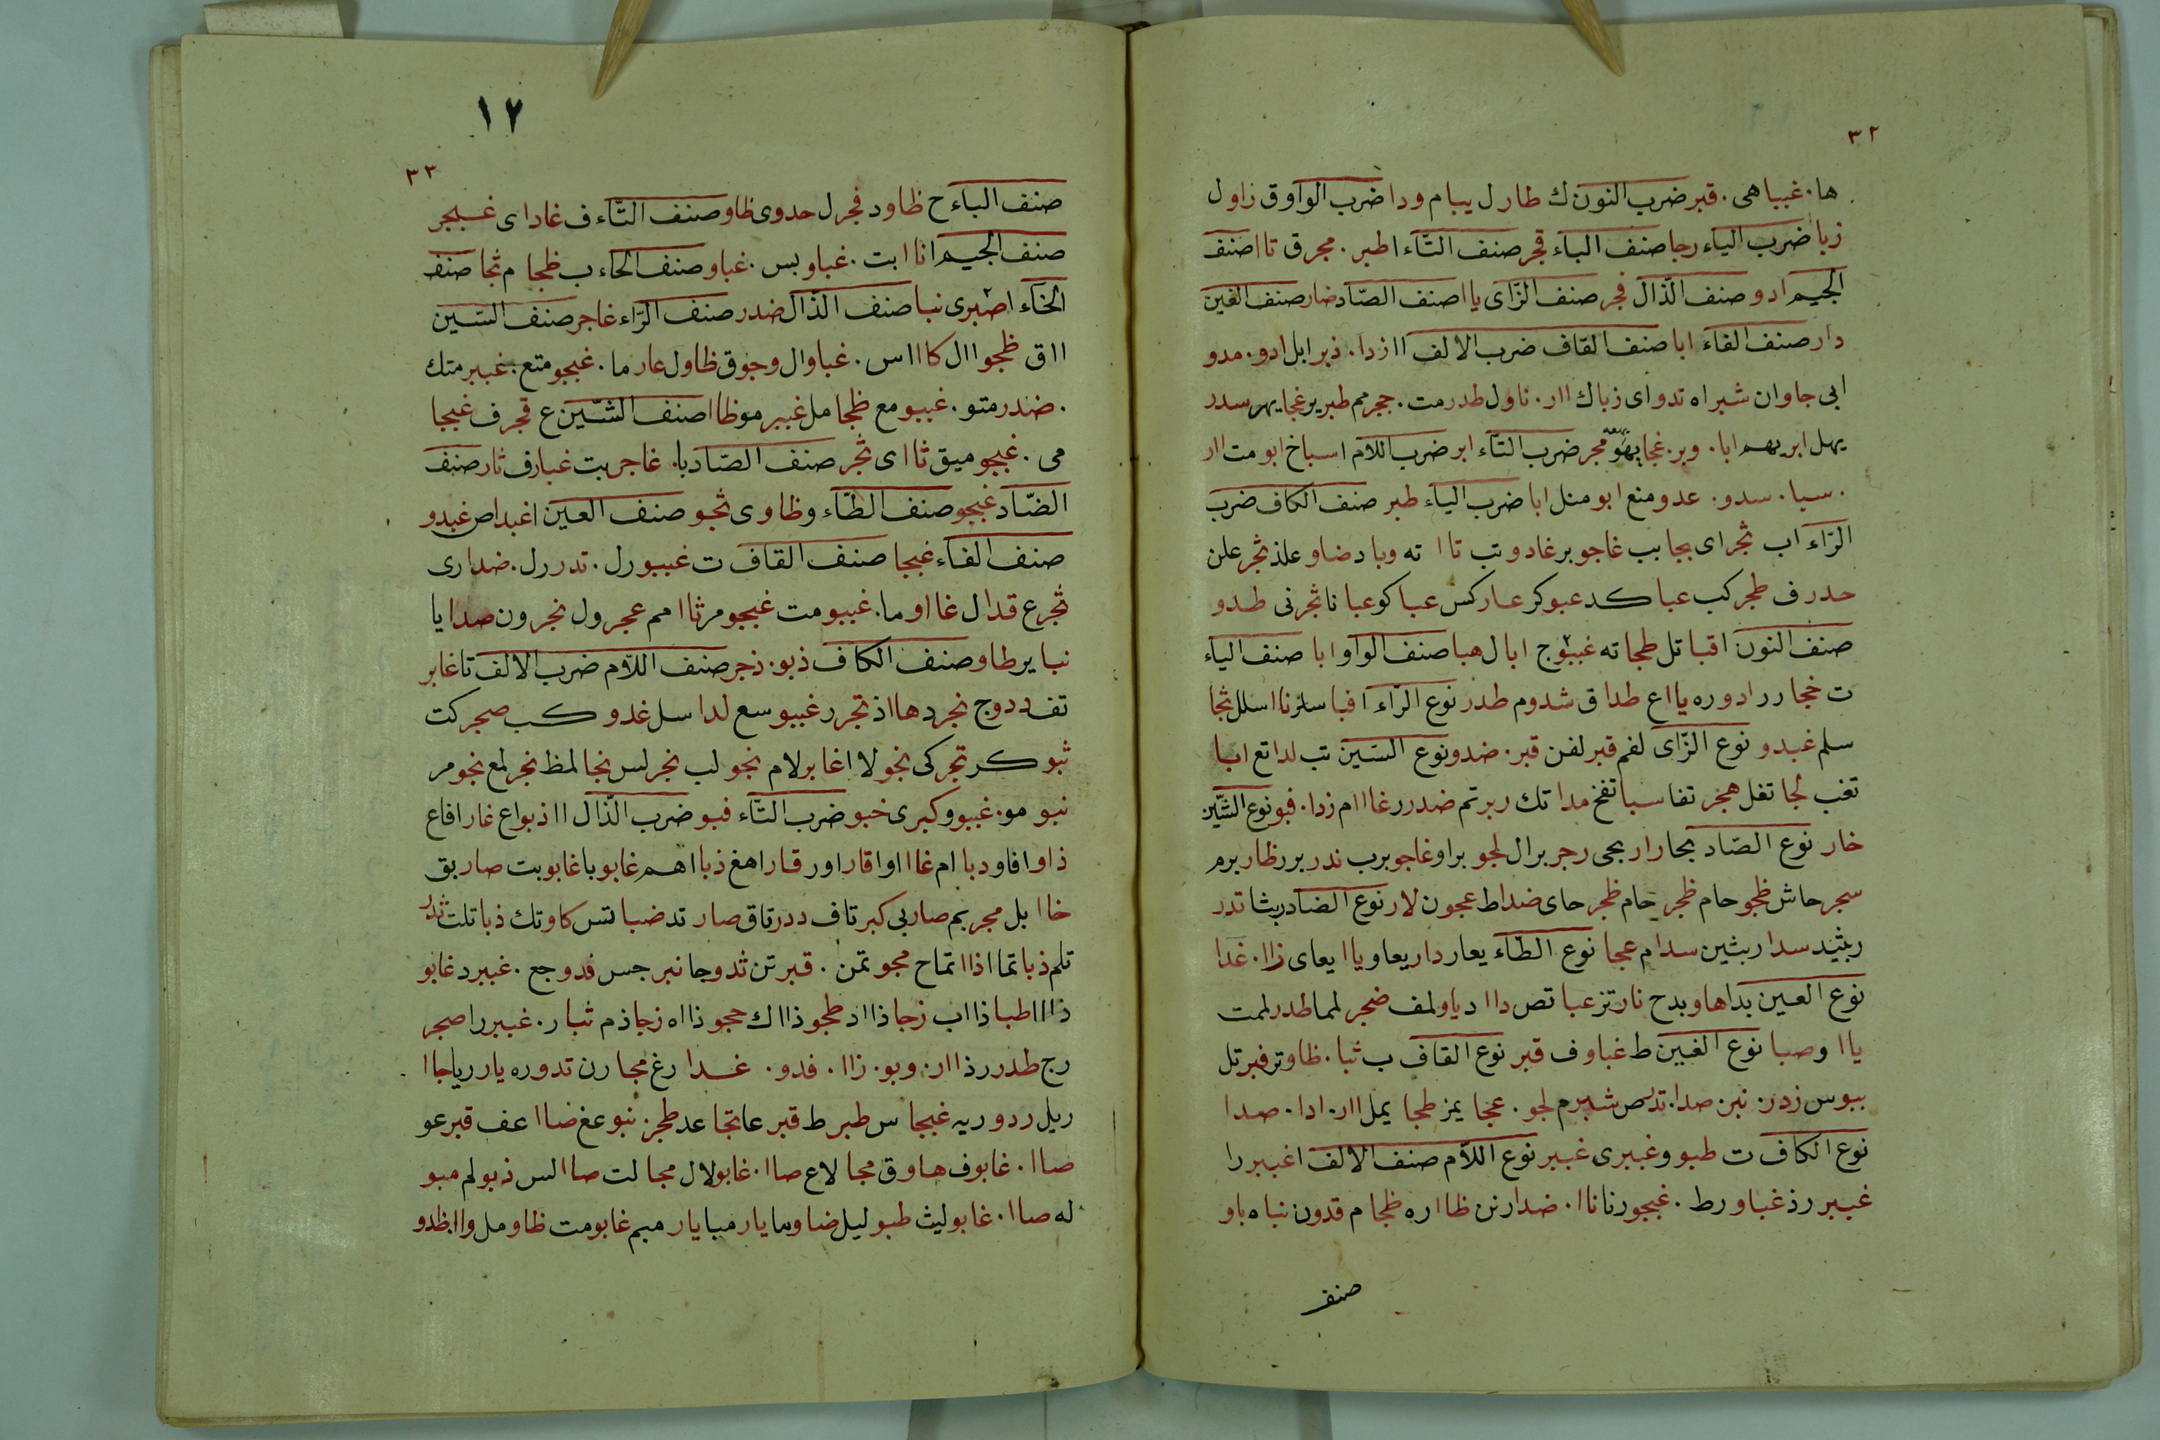 ٣٢
ها. غبباهى. قبر ضرب النون ك طار ل يبام ودا ضرب الواو ق زاول
زبا ضرب الياء رجا صنف الباء قجر صنف التاء اطبر. مجرق تاا صنف
الجيم ادو صنف الذال فجر صنف الزاى ياا صنف الصاد ضار صنف الغين
دار صنف الفاء ابا صنف القاف ضرب الالف اا زدا. ذبرابل ادو. مدو
ابى جاوان شبراه تدواى زباك اار. ناول طدرمت. ججرمم طبرير غجا يهر سدر
يهل ابريهم ابا. وبر. غجا مجر ضرب التاء ابر ضرب اللام اسباخ ابومت اار
. سبا. سدو. عدومنع ابومنل ابا ضرب الياء طبر صنف الكاف ضرب
الراء اب ثجراى بجابب غاجوبر غادوتب تاا ته وباد ضاو علذ ثجر علن
حدرف طجركب عباكد عبوكر عاركس عباكو عبانا ثجرنى طدو
صنف النون اقباتل طجاته غببوج ابال هبا صنف الواو ابا صنف الياء
ت خجار رادوره يااع طداق شدوم طدر نوع الراء افبا سلرنا اسلل ثجا
سلم غبدو نوع الزاى لفم قبر لفن قبر. ضدو نوع السين تب لداتع ابا
تغب لجا تفل هجر تفا سبا تفخ مداتك ربرتم ضدررغاام زدا. فبو نوع الشين
خار نوع الصاد بجارار بجى رجر برال لجو براو غاجو برب ندر بررظار برم
سجر حاش ظجو حام ظجر حام ظجر حاى ضداط عجون لار نوع الضاد ربشا تدر
ربثيد سدا ربشين سدام عجا نوع الطاء يعار دار يعاو ياا يعاى زاا. غدا
نوع العين بداهاو بدح نارتز عباتص داا دياولمف ضجر لمما طدرلمت
ياا وصبا نوع الغين ط غباوف قبر نوع القاف ب ثبا. ظاوتر فبرتل
ببوس زدر. نبن صدا. تدبص شبرم لجو. عجا يمز طجا يمل اار. ادا. صدا
نوع الكاف ت طبو وغببرى غببر نوع اللام صنف الالف اغببررا
غببر رذ غباورط. غبجورناناا. ضدارنن ظااره ظجام قدون نباه باو
صنف
١٢
٣٣
صنف الباء ح ظاود فجرل حدوى ظاو صنف التاء ف غاداى غبجر
صنف الجيم انا ابت. غباوبس. غباو صنف الحاء ب ظجام ثجا صنف
الخاء اصبرى نبا صنف الذال ضدر صنف الراء غاجر صنف السين
ااق ظجواال كاااس. غباوال وجوق ظاول عارما. غبجومتع. غببرمتك
. ضدرمتو. غببومع ظجامل غببرموظاا صنف الشين ع قجرف غبجا
مى. غبجوميق ثااى ثجر صنف الصاد با. غاجربت غبارف ثار صنف
الضاد غبجو صنف الطاء وظاوى ثجو صنف العين اغبداص غبدو
صنف الفاء غبجا صنف القاف ت غببورل. تدررل. ضدارى
ثجرع قدال غااوما. غببومت غبجومرثاامم عجرول نجرون صدايا
نبايرطاو صنف الكاف ذبو. ذجر صنف اللام ضرب الالف تاغابر
تفددوج نجردهااذ تجرر غببوسع لدا سل غدو كب صجركت
ثبوكر تجركى نجو لااغابرلام نجو لب نجر لس نجا لمظ نجر لمع نجومر
نبومو. غببو وكبرى خبو ضرب التاء فبو ضرب الذال اا ذبواع غار افاع
ذاوافاودباام غاااواقاراور قاراهغ ذبااهم غابوبا غابوبت صاربق
خاابل مجربم صاربى كبرتاف ددرتاق صارتد ضباتس كاوتك ذباتلت ثدر
تلم ذباتما اذااتماح مجوتمن. قبرتن ثدوجا نبرجس فدوجع. غببرد غابو
ذاااطبا ذااب زجا ذااد طجو ذااك حجو ذااه زجا ذم ثبار. غببررا صجر
رج طدررذاار. وبو. زاا. فدو. غدا رغ مجارن تدوره يارر ياجاا
ريل ردوريه غبجا س طبرط قبرعا تجا عد طجز. نبوعغ ضاا عف قبرعو
صاا. غابوف هاوق مجا لاع صاا. غابولال مجا لت صاالس ذبولم مبو
له صاا. غابوليث طبوليل ضاوما يارمبا يارمبم غابومت ظاومل واا بظدو